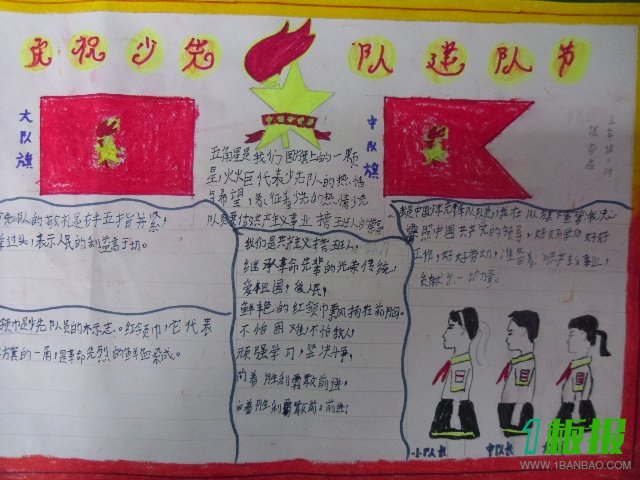 庆祝少先队建队节
大队旗
中队旗
三年级二班
五角星是我们国旗上的一颗
星,火炬代表少先队的热情
与希望,象征着
队员要做共产主义事业接班人的
少先队的敬礼是右手五指并紧,
过头,表示人民的利益高于一切。
领巾是少先队员的标志。红领巾,它代表
旗的一角,是革命先烈的鲜血染成。
我们是共产主义接班人,
继承革命先辈的光荣传统,
爱祖国,爱人民,
鲜艳的红领巾飘扬在前胸。
不怕困难,不怕敌人,
顽强学习,坚决斗争,
向着胜利勇敢前进,
向着胜利勇敢前进,
我是中国少年先锋队队员,我在队旗下宣誓,我决
遵照中国共产党的领导,好好学习,好好
工作,好好劳动,准备着,为共产主义事业,
贡献一切力量。
小队长
中队长
大
1板报
WWW.1BANBAO.COM